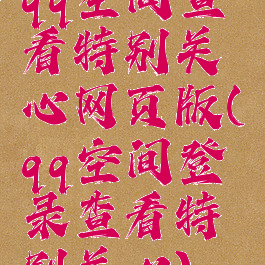 qq空间查
看特别关
心网页版(
qq空间登
录查看特
别关心)